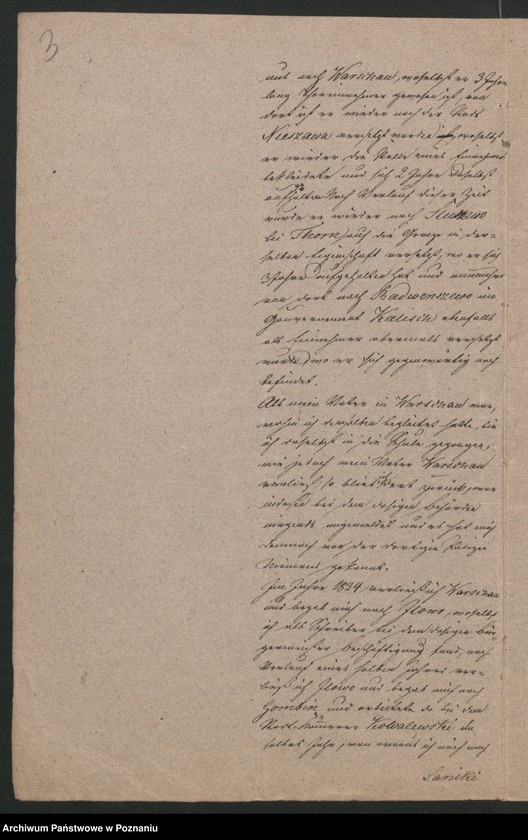 3
und nach Warschau, woselbst er 3 Jahre
lang Thoreinnehmer gewesen ist, von
dort ist er wieder nach der Stadt
Nieszawa versetzt worden, woselbst
er wieder die Stelle eines Einnehmers
bekleidete und sich 2 Jahre daselbst
aufhielt. Nach Verlauf dieser Zeit
wurde er wieder nach Służewo
bei Thorn, auch die Grenze in der-
selben Eigenschaft versetzt, wo er sich
3 Jahre aufgehalten hat und nunmehr
von dort nach Radwenszewo im
Gouvernement Kalisch ebenfalls
als Einnehmer abermals versetzt
wurde, wo er sich gegenwärtig noch
befindet.
Als mein Vater in Warschau war,
wohin ich denselben begleitet habe, bin
ich daselbst in die Schule gegangen;
wie jedoch mein Vater Warschau
verließ, so blieb ich dort zurück, war
indeß bei dem dasigen Behörde
nirgends angemeldet und es hat mich
demnach von der dortigen Polizei
Niemand gekannt.
Im Jahre 1834 verließ ich Warschau
und begab mich nach Iłowo, woselbst
ich als Schreiber bei dem dasigen Bür-
germeister Beschäftigung fand; nach
Verlauf eines halben Jahres ver-
ließ ich Iłowo und begab mich nach
Gombin und arbeitete da bei dem
Stadt-Kämmerer Kowalewski ein
halbes Jahr, von wo ich mich nach
Sanicki
Archiwum Państwowe w Poznaniu